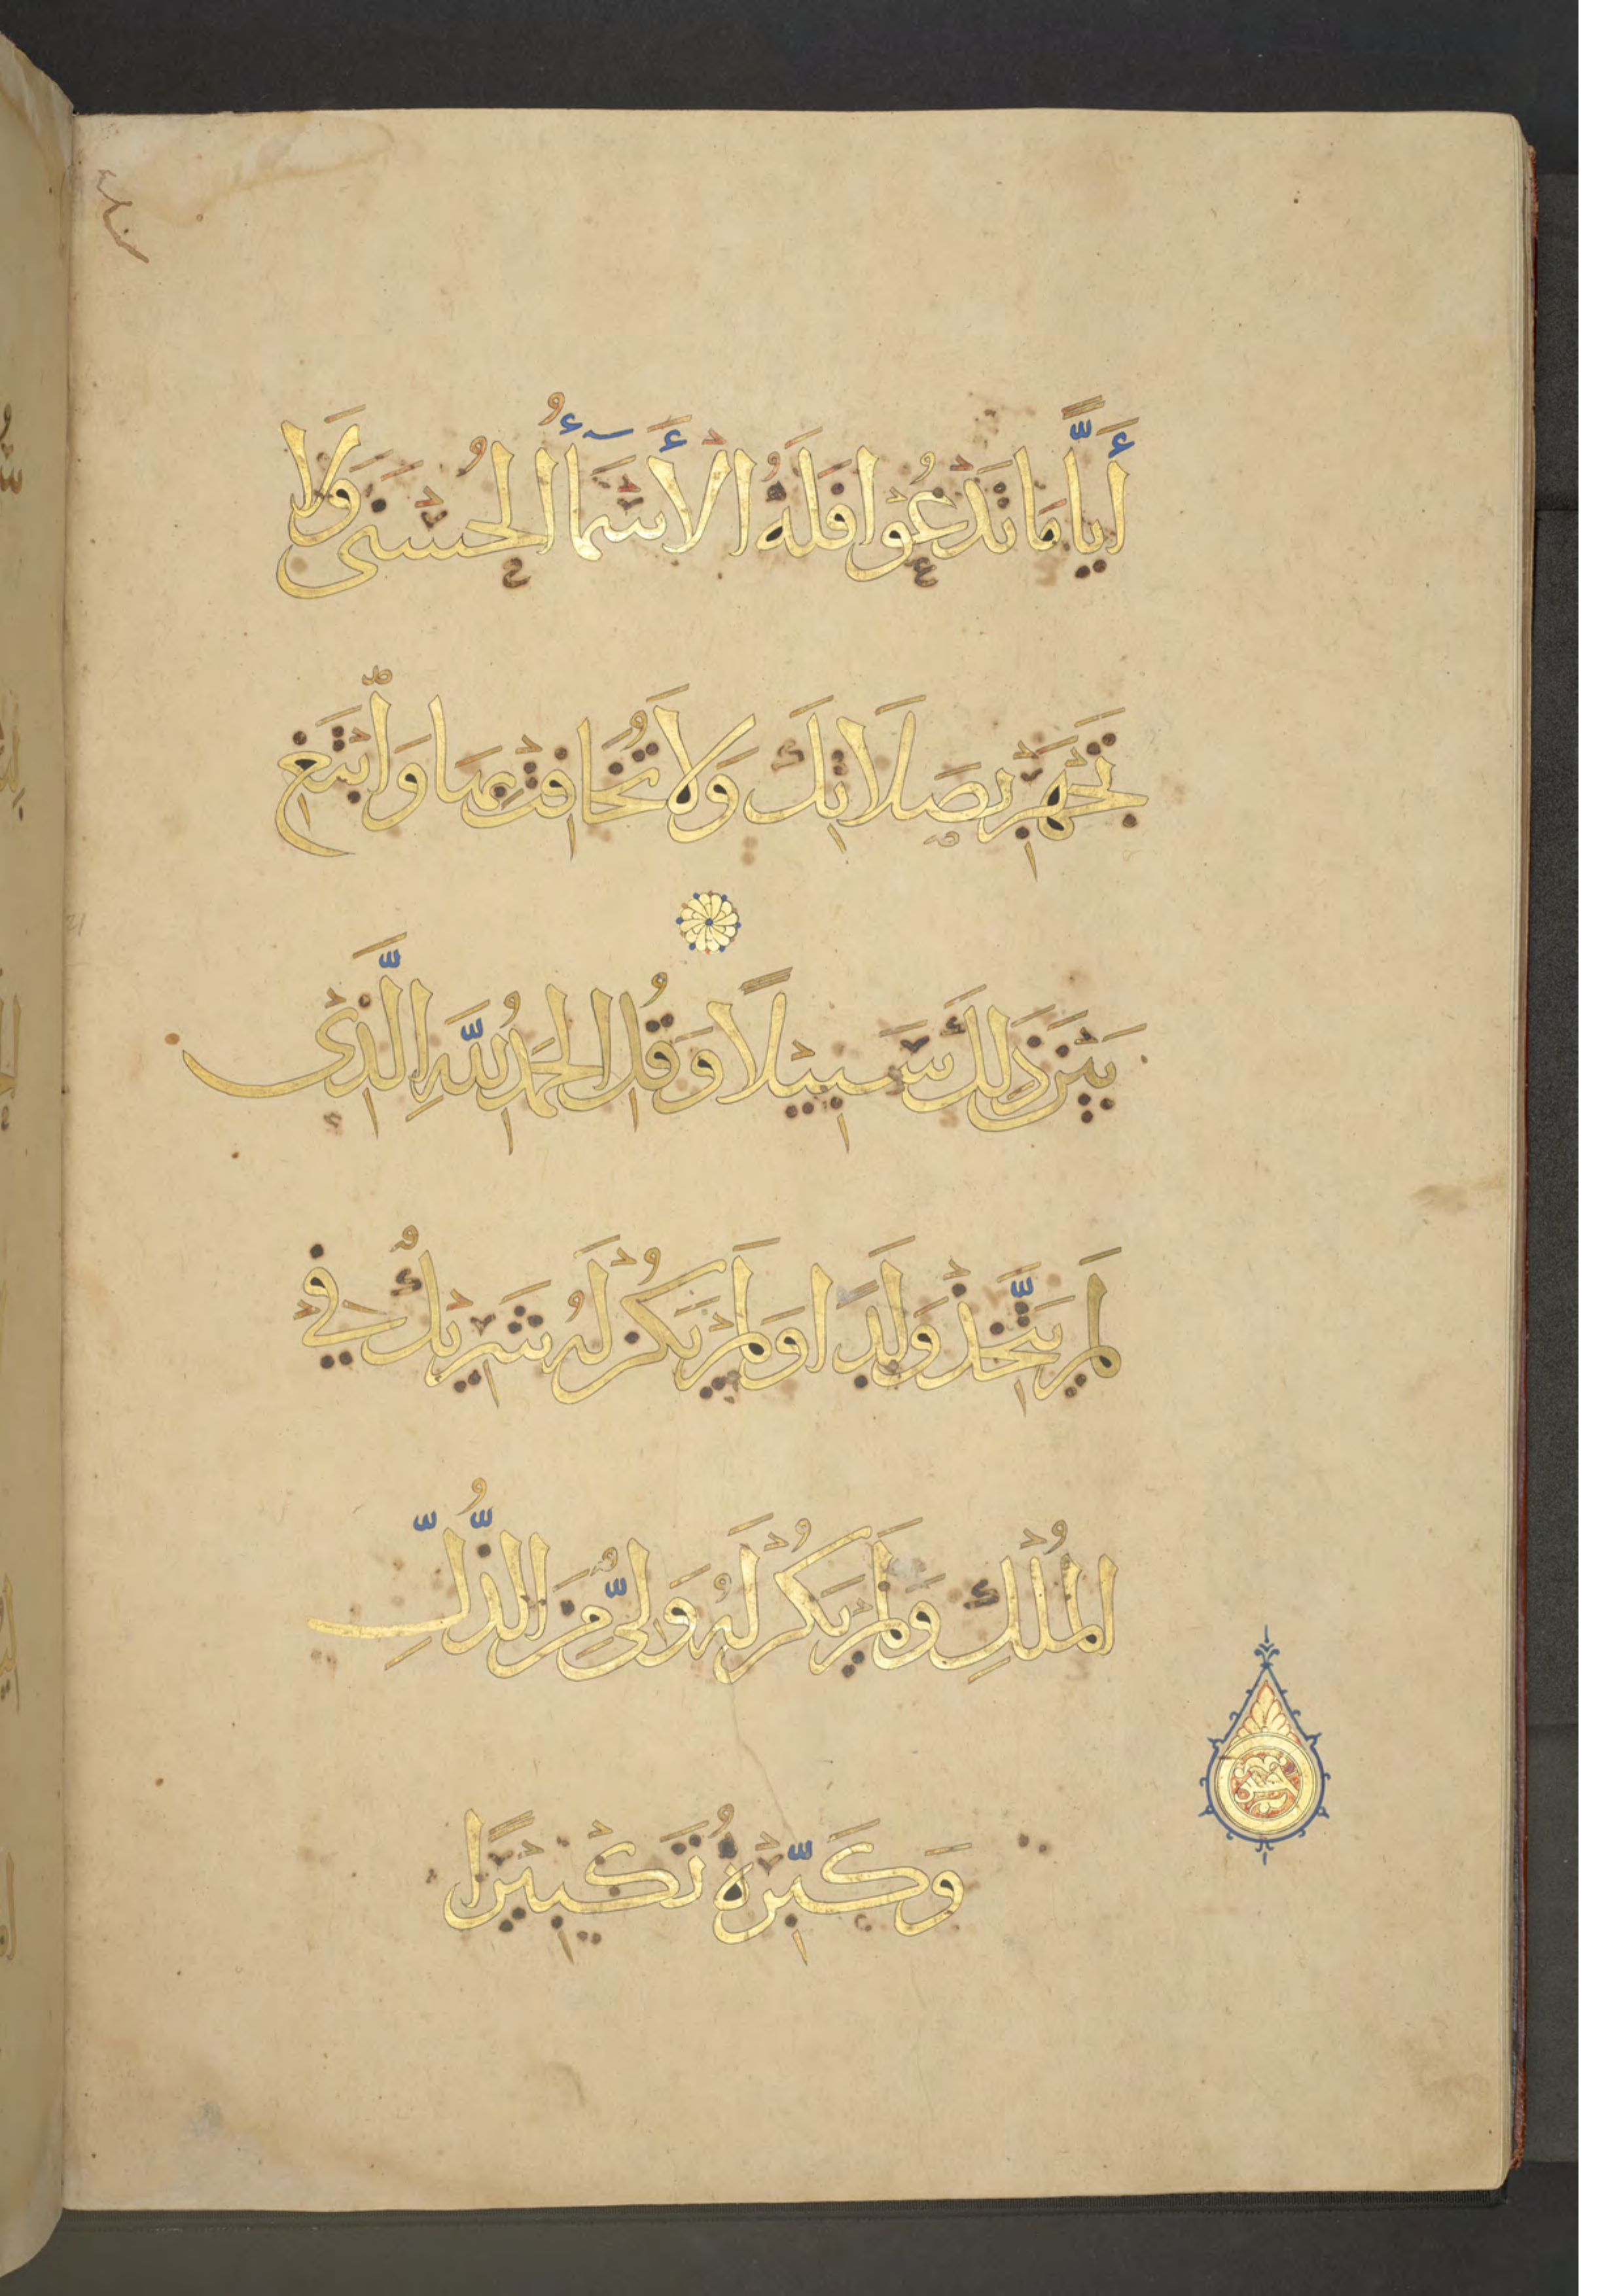 أَيًّا مَا تَدْعُوا فَلَهُ الْأَسْمَآءُ الْحُسْنَى وَلَا
تَجْهَرْ بِصَلَاتِكَ وَلَا تُخَافِتْ بِهَا وَابْتَغِ
بَيْنَ ذَلِكَ سَبِيلًا وَقُلِ الْحَمْدُ لِلَّهِ الَّذِي
لَمْ يَتَّخِذْ وَلَدًا وَلَمْ يَكُنْ لَهُ شَرِيكٌ فِي
الْمُلْكِ وَلَمْ يَكُنْ لَهُ وَلِيٌّ مِنَ الذُّلِّ
وَكَبِّرْهُ تَكْبِيرًا